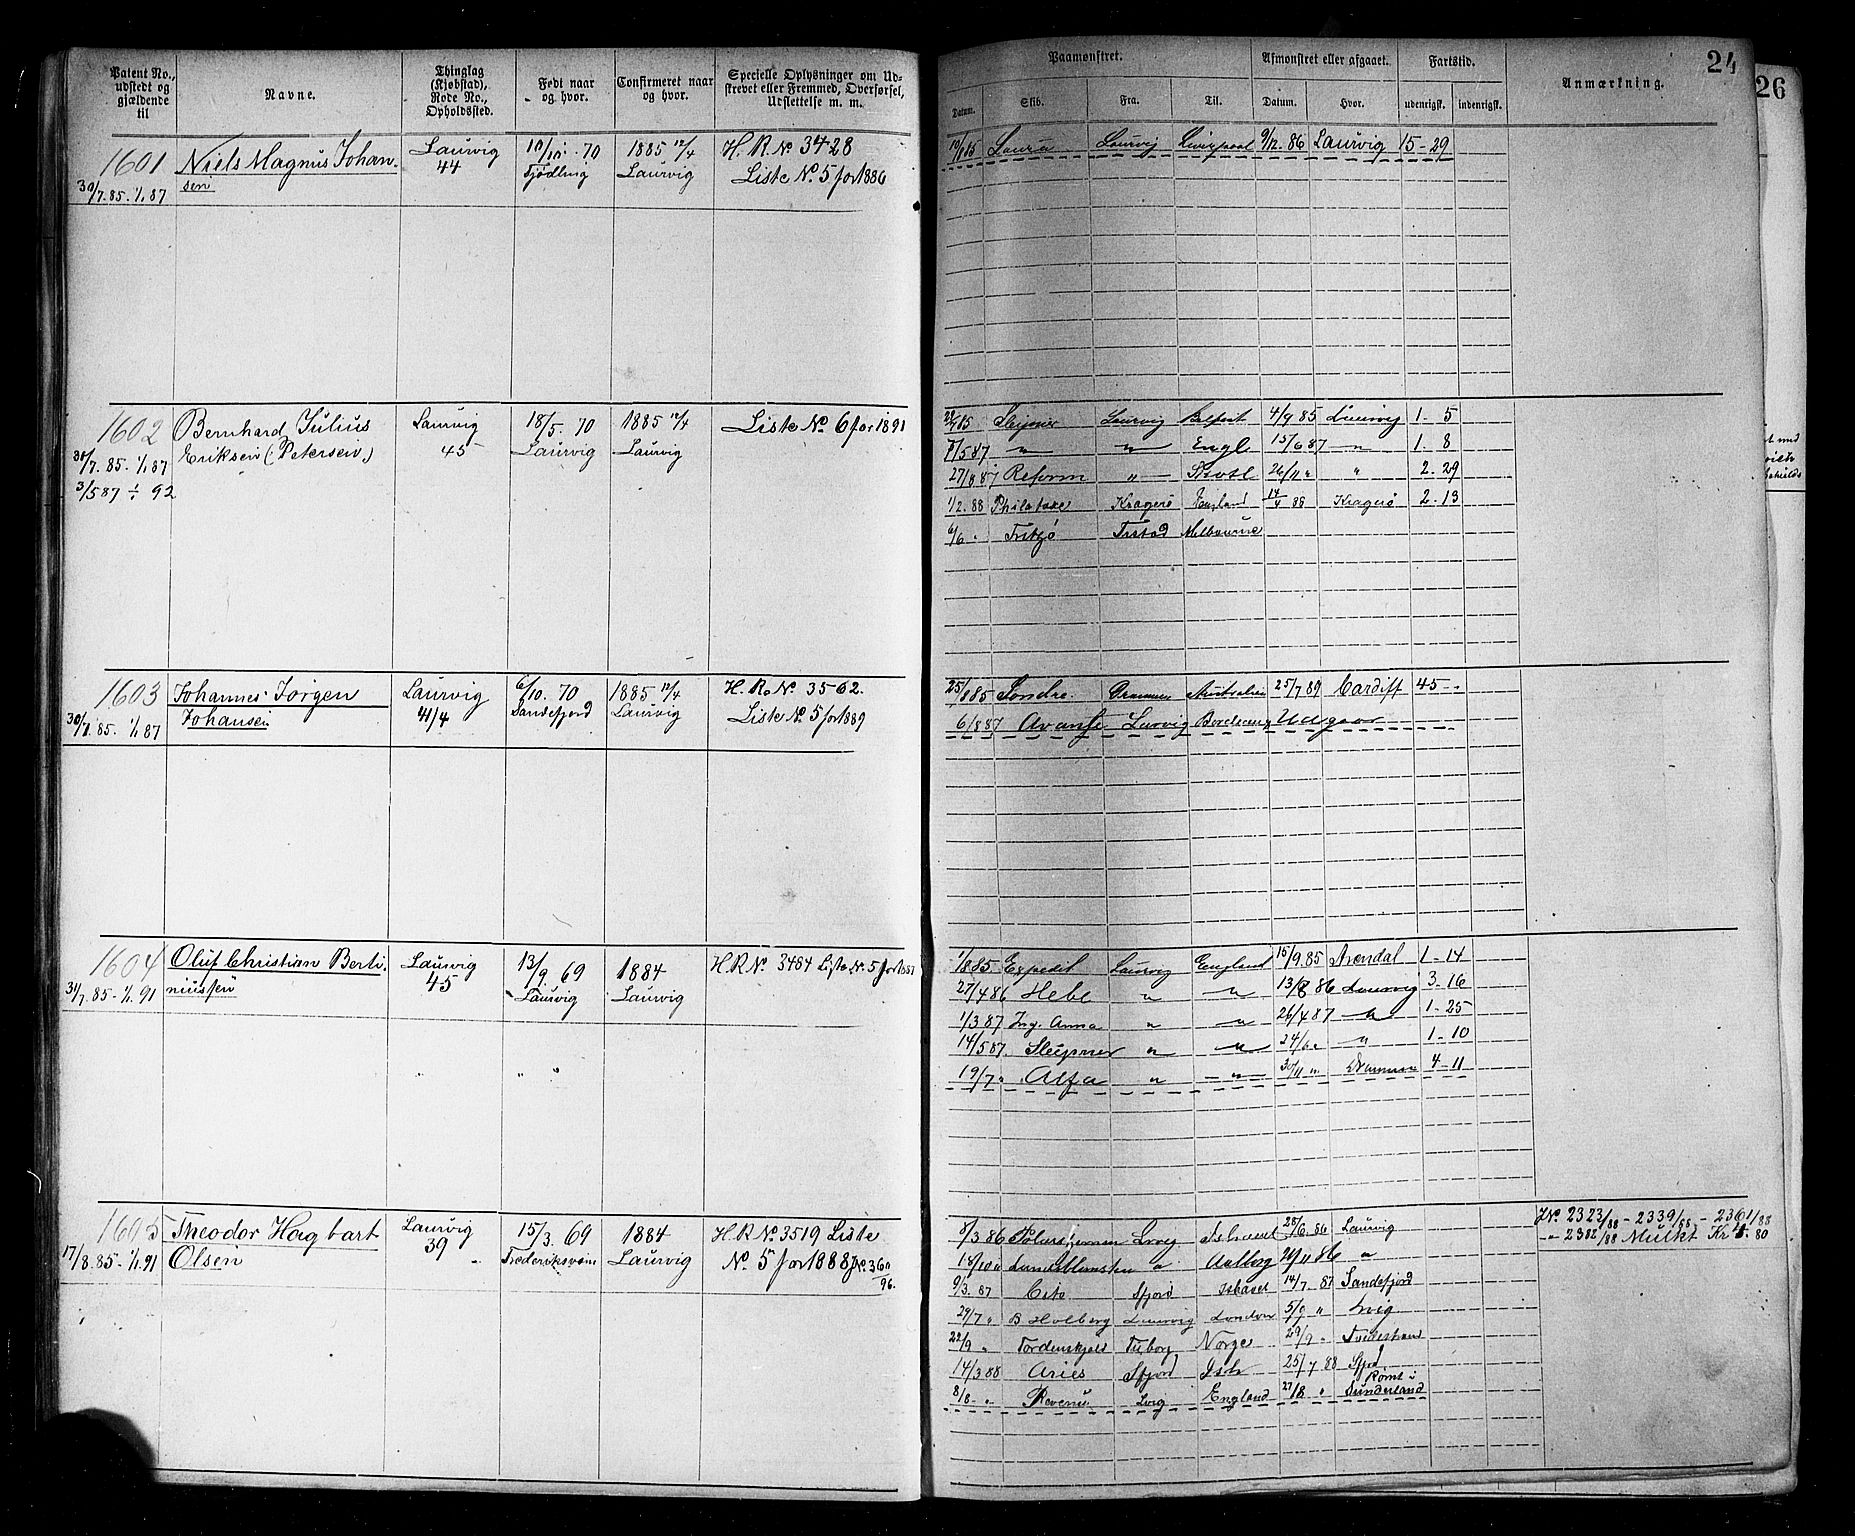 Patent No., udstedt og gjældende til
Navne.
Thinglag (Kjøbstad), Rode No., Opholdssted.
Født naar og hvor.
Confirmeret naar og hvor.
Specielle Oplysninger om Udskrevet eller Fremmed, Overførsel, Udslettelse m. m.
Paamønstret.
Datum.
Skib.
Fra.
Til.
Afmønstret eller afgaaet.
Datum.
Hvor.
Fartstid.
udenrigsk.
indenrigsk.
Anmærkning.
24
26
1601 Niels Magnus Johan- Laurvig 70 1885 12/4 H. R. No 3428
30/7.85-1/1 87 sen 44 Fjödling Laurvig Liste No 5 for 1886
Laura Laurvig Liverpool 9/12 86 Laurvig 15-29
1602 Bernhard Julius Laurvig 18/5. 70 1885 12/4 Liste No 6 for 1891
30/7.85-1/1 87 Eriksen (Petersen) 45 Laurvig Laurvig
3/5 87 ÷ 92
Laurvig Belfast 4/9 85 Laurvig 1-5
7/5 87 " " Engl 15/6 87 " 1-8
27/8 87 Reform " 26/11 " " 2-29
1/2.88 Kragerö England 14/4 88 Kragerö 2-13
6/6 " Melbourne
1603 Johannes Jörgen Laurvig 6/10. 70 1885 12/4 H. R. No 3562.
30/7.85-1/1 87 Johansen 44 Sandefjord Laurvig Liste No 5 for 1889
25/8 85 Sondre Drammen Australien 25/7 87 Cardiff 45-
6/8 87 Avanse Larvig
1604 Oluf Christian Berti- Laurvig 13/9. 69 1884 H.R No 3484 Liste No 5 for 1887
31/7.85-1/1.91 niussen 45 Laurvig Laurvig
1/8 85 Expedit Laurvig England 15/9.85 Arendal 1-14
27/4 86 Hebe " " 13/8 86 Laurvig 3-16
1/3 87 Ing. Anna " " 26/4 87 " 1-25
14/5 87 Sleipner " " 24/6 " " 1-10
19/7 " Alfa " " 30/11 " Drammen 4-11
1605 Theodor Hagbart Laurvig 15/3. 69 1884 H.R No 3519 Liste
17/8.85-1/1.91 Olsen 39 Frederiksværn Laurvig No 5 for 1888 J No 360/96.
8/3 86 Polarstjernen Lrvig Ishavet 28/6.86 Laurvig
JNo 2323/88 - 2339/88 - 2361/88
14/10 " " Aalborg 29/11 86 "
" 2382/88 Mulkt Kr 4.80
9/3.87 Cito Sfjord Ishavet 14/7 87 Sandefjord
29/7 " B Holberg Laurvig London 5/9 " Lrvig
22/9 " Tordenskjold Norge 29/9 "
14/3 88 Aries Sfjord Ish 25/7 88 Sfjrd
8/8 " Revenu Lvig England 27/8 " Rømt i Sunderland